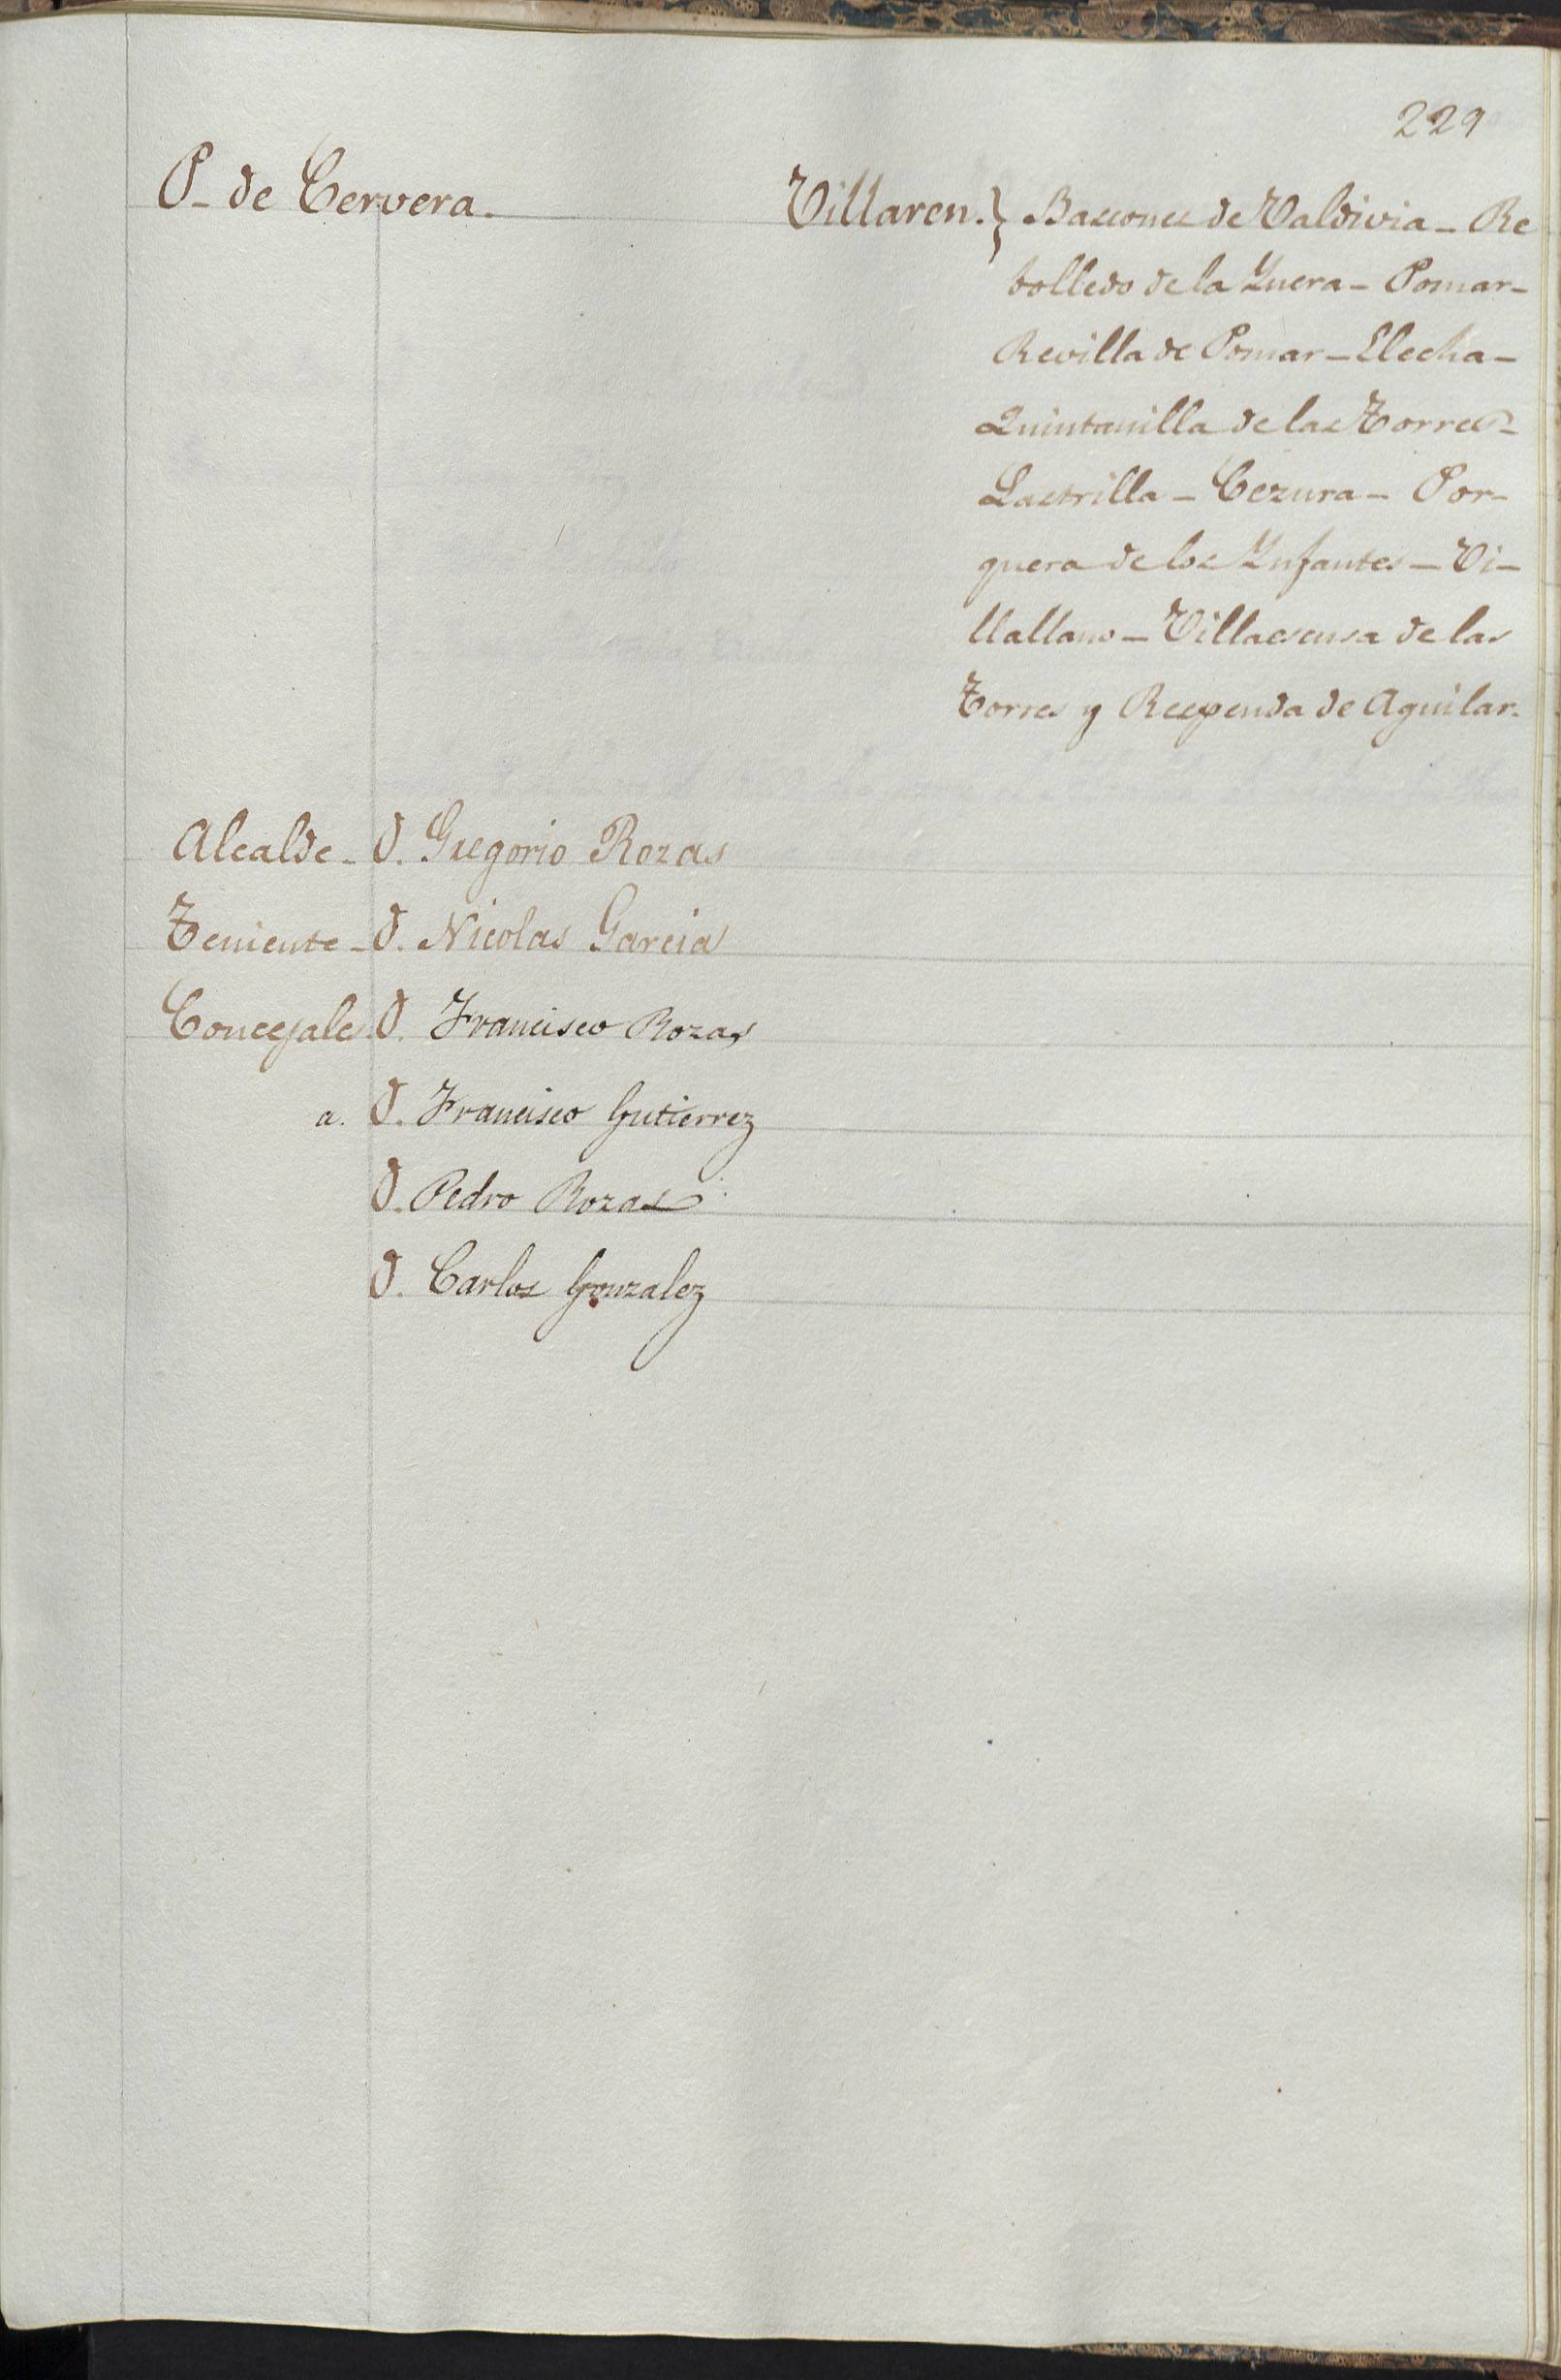 229
P- de Cervera. Villaren.} Bascones de Valdivia - Re
bolledo de la Ynera - Pomar -
Revilla de Pomar - Elecha -
Quintanilla de las Torres -
Lastrilla - Cezura - Por-
quera de los Ynfantes - Vi-
llallano - Villaescusa de las
Torres y Respenda de Aguilar.
Alcalde - D. Gregorio Rozas
Teniente - D. Nicolas Garcia
Concejales D. Francisco Rozas
a. D. Francisco Gutierrez
D. Pedro Rozas
D. Carlos Gonzalez